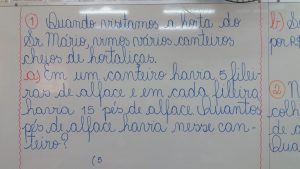 ① Quando visitamos a horta do
Sr. Mário, vimos vários canteiros
cheios de hortaliças.
a) Em um canteiro havia 5 filei-
ras de alface e em cada fileira
havia 15 pés de alface. Quantos
pés de alface havia nesse can-
teiro?
(5
b) S
por R$
② N
colh
de
Qua